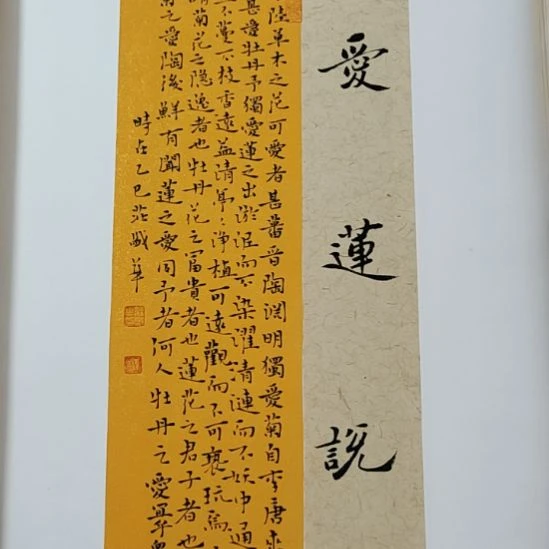 愛蓮說
陸草木之花可愛者甚蕃晉陶渕明獨愛菊自李唐来
甚愛牡丹予獨愛蓮之出淤泥而不染濯清漣而不妖中通
不蔓不枝香遠益清亭〻淨植可遠觀而不可褻玩焉
謂菊花之隱逸者也牡丹花之富貴者也蓮花之君子者也
菊之愛陶後鮮有聞蓮之愛同予者何人牡丹之愛宜乎
時在乙巳莊